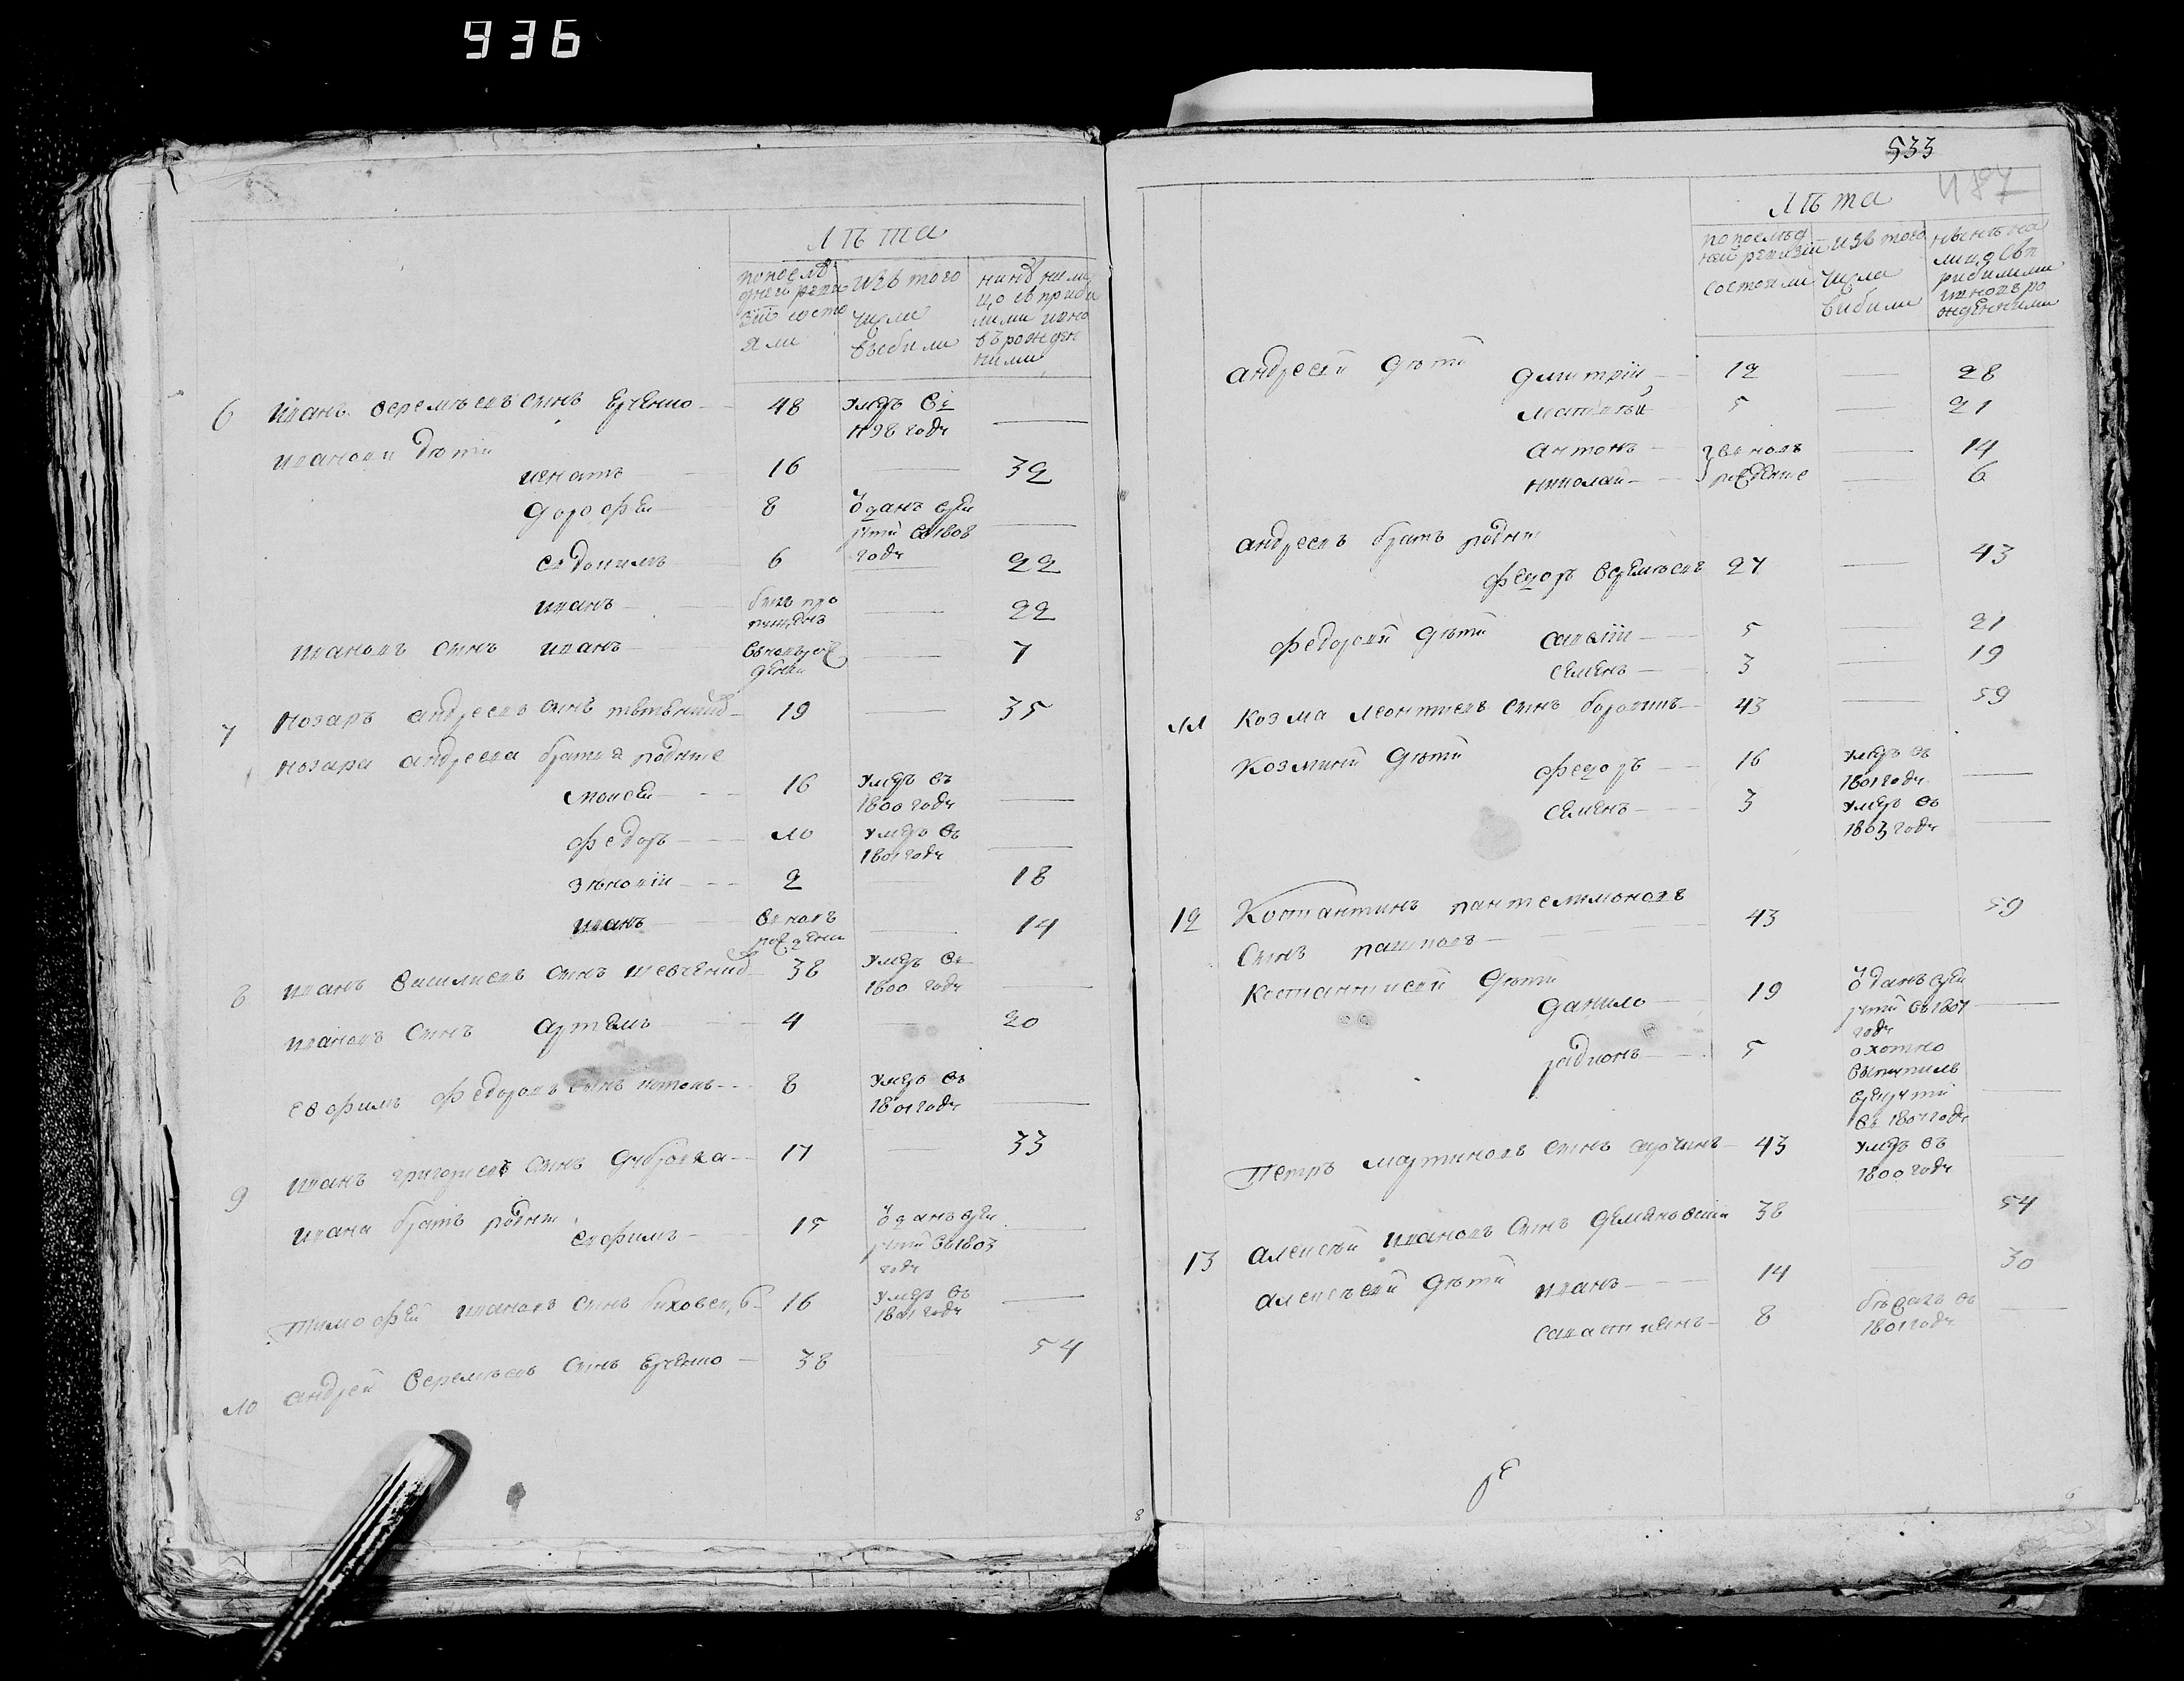 936
Лѣта
попослѣ
дней реви
зіи состо
яли
изъ того
числа
выбыли
нинѣ нали
цо съ приби
лими ино
въ рожден
ними
6 иванъ веремѣевъ сынъ Ерченко 48 умеръ въ
1798 годѣ
ивановы дѣти
игнатъ 16 32
дорофей 8 отданъ врек
рути въ 1808
годѣ
евдокимъ 6 22
иванъ былъ про
пищенъ 22
ивановъ сынъ иванъ вновь рож
денъ 7
7 назаръ андреевъ сынъ 19 35
назара андреева братья родные
моисей 16 умеръ въ
1800 годѣ
федоръ 10 умеръ въ
1801 годѣ
зѣновій 2 18
иванъ вновь
рожденъ 14
8 иванъ василиевъ сынъ шевченко 38 умеръ въ
1800 годѣ
ивановъ сынъ артемъ 4 20
евфимъ федоровъ сынъ 8 умеръ въ
1801 годѣ
9 иванъ григориевъ сынъ дубровка 17 33
ивана братъ родный
евфимъ 15 отданъ врек
рути въ 1803
годѣ
тимофей ивановъ сынъ биховецъ 16 умеръ въ
1801 годѣ
10 андрей веремѣевъ сынъ Ерченко 38 54
8
533
487
Лѣта
попослѣд
ней ревизіи
состояли
изъ того
числа
вибили
нынѣ на
лицо съ п
рибилими
и вновь ро
жденними
андреевы дѣти дмитрій 12 28
матвѣй 5 21
антонъ вновь 14
николай рожденые 6
андреевъ братъ родны
федоръ веремѣевъ 27 43
федоровы дѣти савелій 5 21
семенъ 3 19
11 козма леонтиевъ сынъ 43 59
козмины дѣти федоръ 16 умеръ въ
1801 годѣ
семенъ 3 умеръ въ
1803 годѣ
12 Костантинъ пантелимоновъ
сынъ пашковъ 43 59
костантиевы дѣти
данило 19 отданъ врек
рути въ 1807
годѣ
радионъ 5 охотно
выступилъ
врекрути
въ 1807 годѣ
Петръ мартиновъ сынъ 43 умеръ въ
1800 годѣ
13 алексѣй ивановъ сынъ демяновскій 38 54
алексѣевы дѣти иванъ 14 30
савастиянъ 8 бѣжалъ въ
1801 годѣ